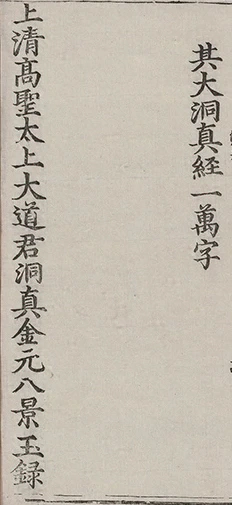 其大洞真経一萬字
上清髙聖太上大道君洞真金元八景玉録